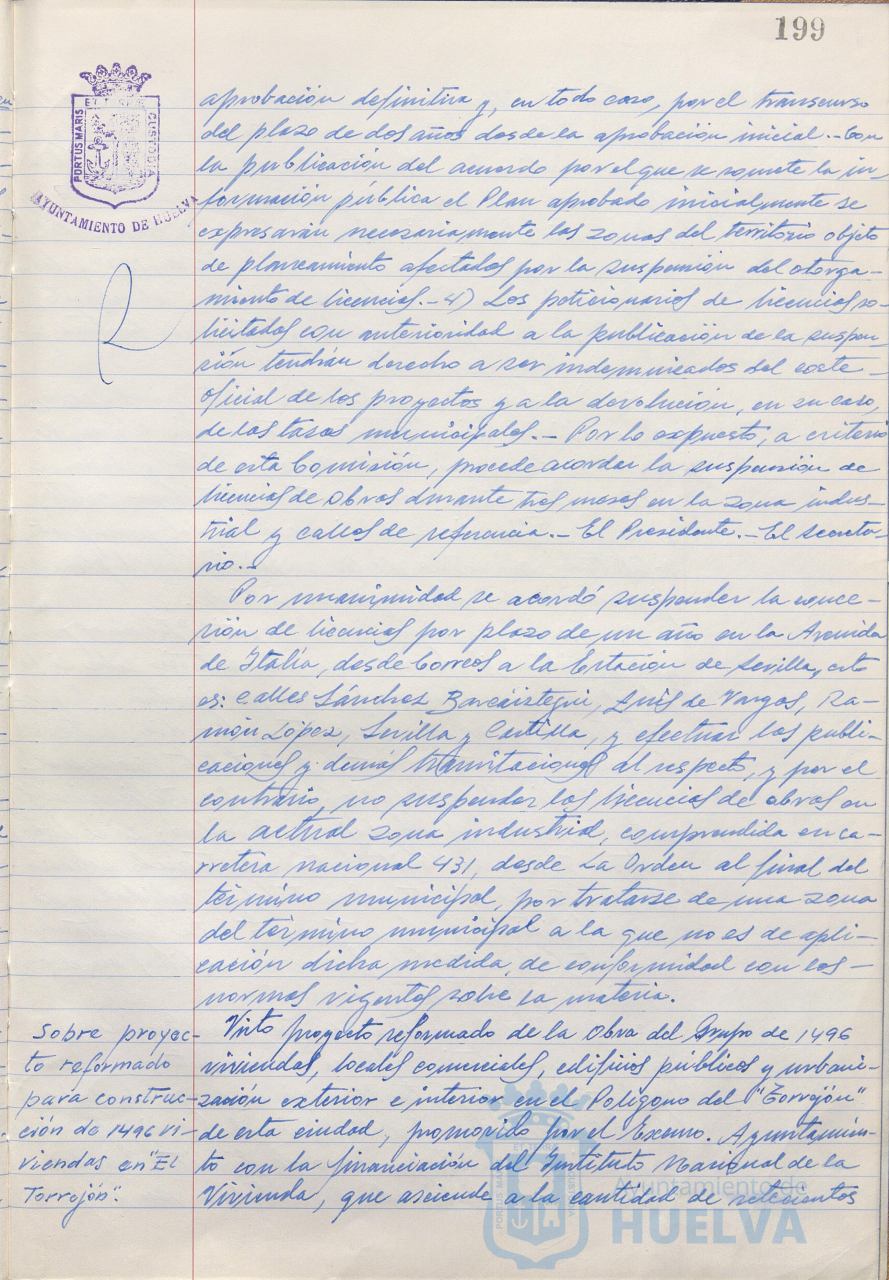 199
PORTUS MARIS
CUSTODIA
AYUNTAMIENTO DE HUELVA
aprobación definitiva y, en todo caso, por el transcurso
del plazo de dos años desde la aprobación inicial.- Con
la publicación del acuerdo por el que se somete la in-
formación pública el Plan aprobado inicialmente se
expresarán necesariamente las zonas del territorio objeto
de planeamiento afectadas por la suspensión del otorga-
miento de licencias.- 4) Los peticionarios de licencias so-
licitadas con anterioridad a la publicación de la suspen-
sión tendrán derecho a ser indemnizados del coste
oficial de los proyectos y a la devolución, en su caso,
de las tasas municipales.- Por lo expuesto, a criterio
de esta Comisión, procede acordar la suspensión de
licencias de obras durante tres meses en la zona indus-
trial y calles de referencia.- El Presidente.- El Secreta-
rio.-
Por unanimidad se acordó suspender la conce-
sión de licencias por plazo de un año en la Avenida
de Italia, desde Correos a la Estación de Sevilla, esto
es: calles Sánchez Barcáiztegui, Luis de Vargas, Ra-
món López, Sevilla y Castilla, y efectuar las publi-
caciones y demás tramitaciones al respecto, y por el
contrario, no suspender las licencias de obras en
la actual zona industrial, comprendida en ca-
rretera nacional 431, desde La Orden al final del
término municipal, por tratarse de una zona
del término municipal a la que no es de apli-
cación dicha medida, de conformidad con las
normas vigentes sobre la materia.
Sobre proyec-
to reformado
para construc-
ción de 1496 vi-
viendas en "El
Torrejón".
Visto proyecto reformado de la Obra del Grupo de 1496
viviendas, locales comerciales, edificios públicos y urbani-
zación exterior e interior en el Polígono del "Torrejón"
de esta ciudad, promovido por el Excmo. Ayuntamien-
to con la financiación del Instituto Nacional de la
Vivienda, que asciende a la cantidad de setecientos
PORTUS MARIS
Ayuntamiento de
HUELVA